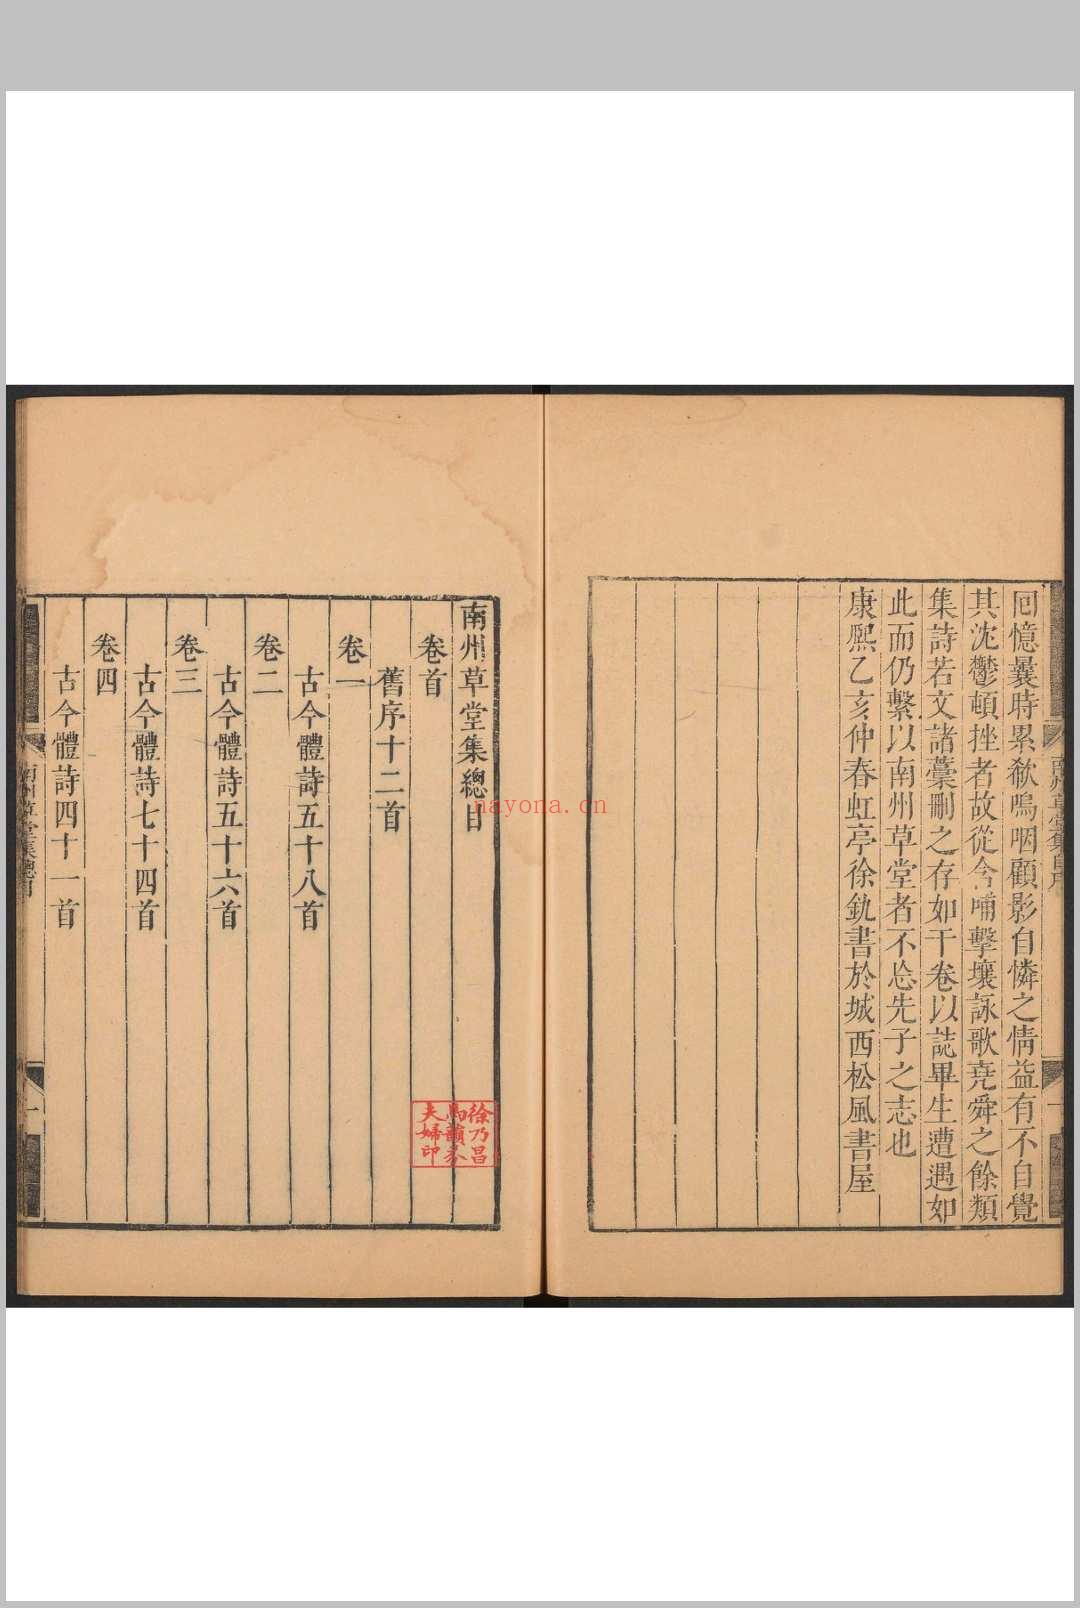 回憶曩時累欷嗚咽顧影自憐之情益有不自覺
其沈鬱頓挫者故從今哺擊壤詠歌堯舜之餘類
集詩若文諸藁刪之存如干卷以誌畢生遭遇如
此而仍繫以南州草堂者不忘先子之志也
康熙乙亥仲春虹亭徐釚書於城西松風書屋
南州草堂集總目
卷首
舊序十二首
卷一
古今體詩五十八首
卷二
古今體詩五十六首
卷三
古今體詩七十四首
卷四
古今體詩四十一首
南州草堂集總目
一
徐乃昌
馬韻芬
夫婦印
nayona.cn